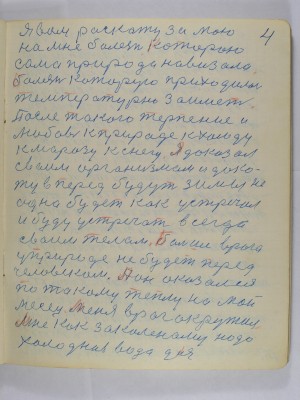 4
Я вам раскажу за мою
на мне болезн которою
сама природа навизала.
болезн которую приходилос
температурно заимет.
После такого терпение и
любови к природе к холоду
к марозу к снегу. Я доказал
своим организмам и дока-
жу в перед будут зимы не
одно будет как устречал
и буду устречат всегда
своим телам. Болши врага
у природе не будет перед
человеком. А он оказался
по такому теплу на мой
месец. Меня враг окружил
Мне как закаленому надо
холодная вода для